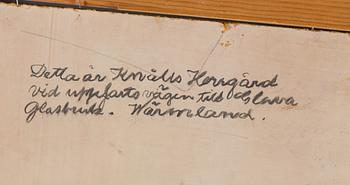 Detta är Knölls Herrgård
vid uppfartsvägen till Glava
Glasbruk. Wärmland.